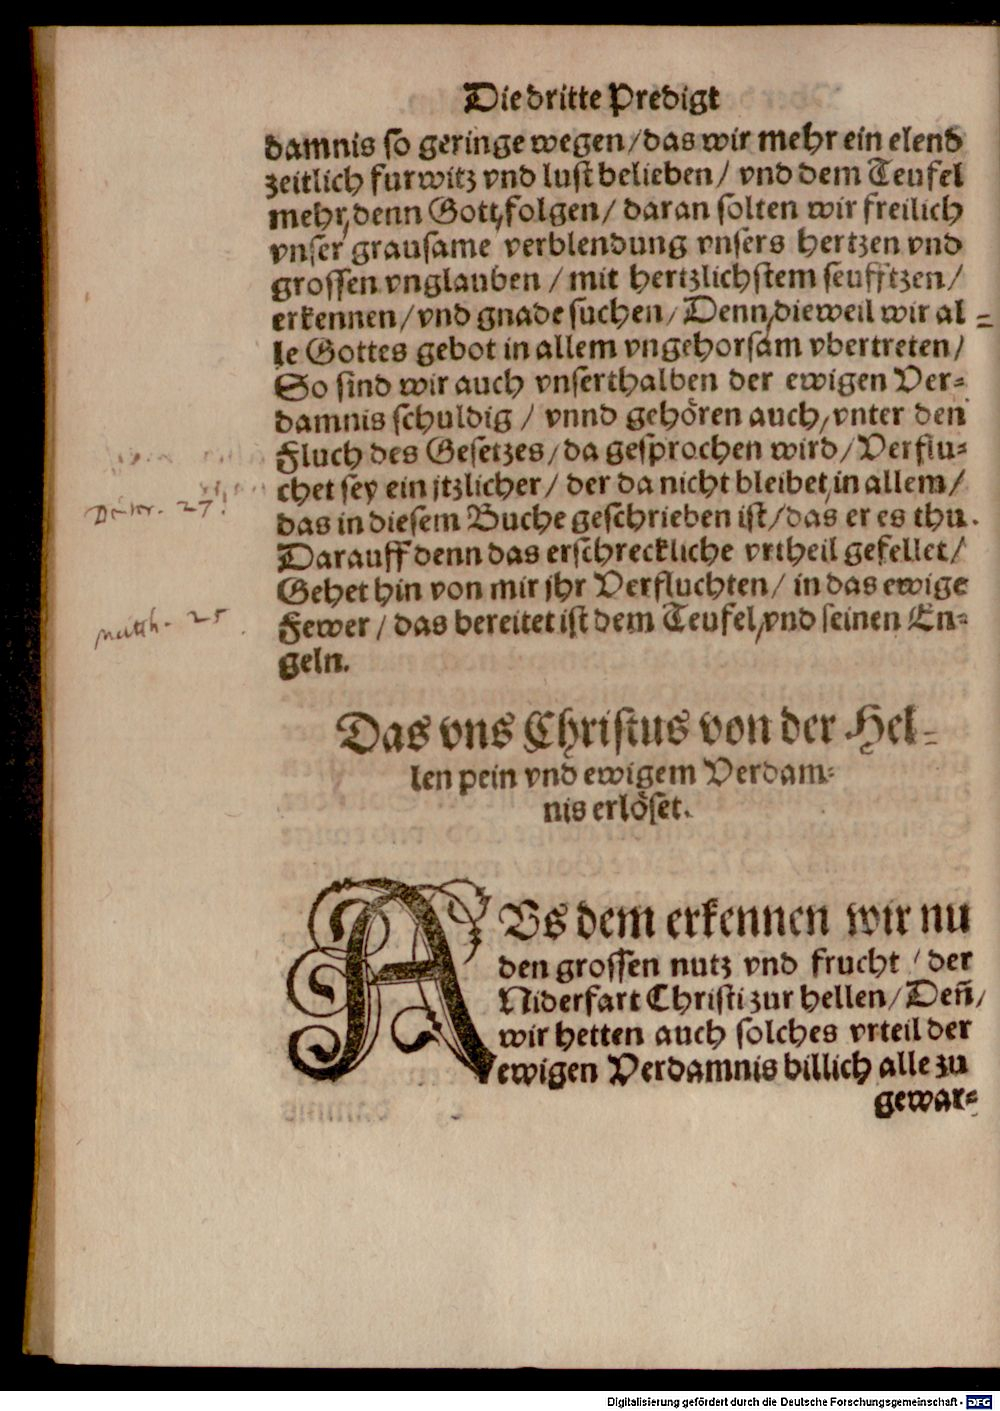 Die dritte Predigt
damnis so geringe wegen/das wir mehr ein elend
zeitlich furwitz vnd lust belieben/ vnd dem Teufel
mehr, denn Gott, folgen/ daran solten wir freilich
vnser grausame verblendung vnsers hertzen vnd
grossen vnglauben / mit hertzlichstem seufftzen/
erkennen/vnd gnade suchen/ Denn, dieweil wir al=
le Gottes gebot in allem vngehorsam vbertreten/
So sind wir auch vnserthalben der ewigen Ver=
damnis schuldig / vnnd gehören auch, vnter den
Fluch des Gesetzes/da gesprochen wird/ Verflu=
chet sey ein jtzlicher/ der da nicht bleibet, in allem/
Deuter. 27.
das in diesem Buche geschrieben ist/das er es thu.
Darauff denn das erschreckliche vrtheil gefellet/
Gehet hin von mir jhr Verfluchten/ in das ewige
Matth. 25.
Fewer/ das bereitet ist dem Teufel, vnd seinen En=
geln.
Das vns Christus von der Hel=
len pein vnd ewigem Verdam=
nis erlöset.
AVs dem erkennen wir nu
den grossen nutz vnd frucht / der
Niderfart Christi zur hellen/Deñ/
wir hetten auch solches vrteil der
ewigen Verdamnis billich alle zu
gewar=
Digitalisierung gefördert durch die Deutsche Forschungsgemeinschaft - DFG